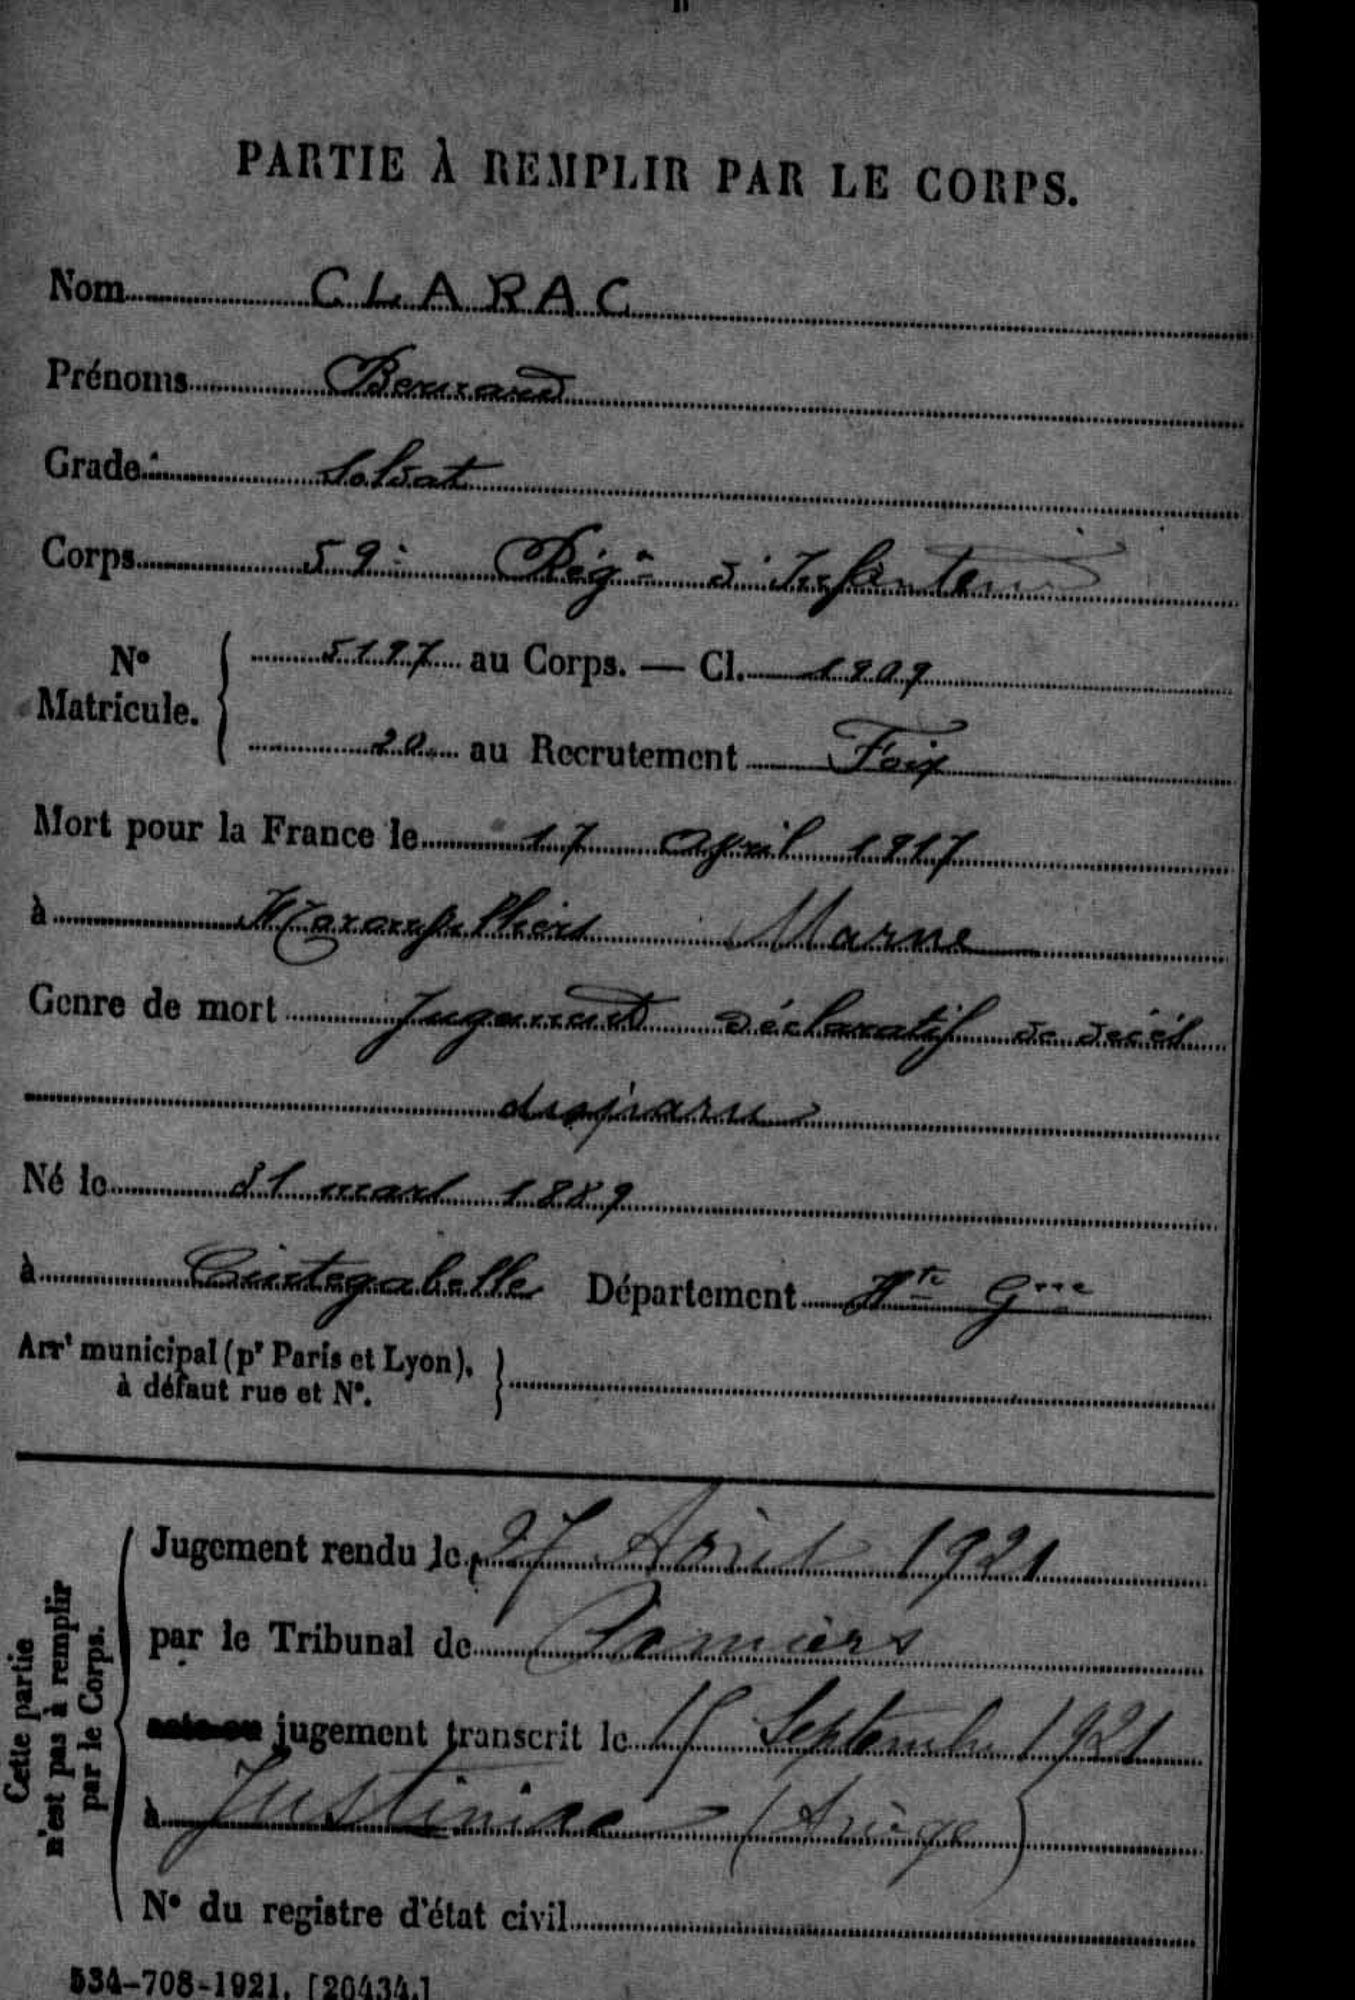 PARTIE À REMPLIR PAR LE CORPS.
Nom CLARAC
Prénoms Bernard
Grade Soldat
Corps 59e Régt d'Infanterie
No Matricule. 5197 au Corps. — Cl. 1909
20 au Recrutement Foix
Mort pour la France le 17 april 1917
à Marne
Genre de mort Jugement déclaratif de décès
disparu
Né le 31 mars 1889
à Cintegabelle Département Hte Gnne
Arrt municipal (pr Paris et Lyon),
à défaut rue et No.
Cette partie
n'est pas à remplir
par le Corps.
Jugement rendu le 27 Avril 1921
par le Tribunal de Pamiers
acte ou jugement transcrit le Septembre 1921
à Justiniac (Ariège)
No du registre d'état civil
534-708-1921. [26434.]